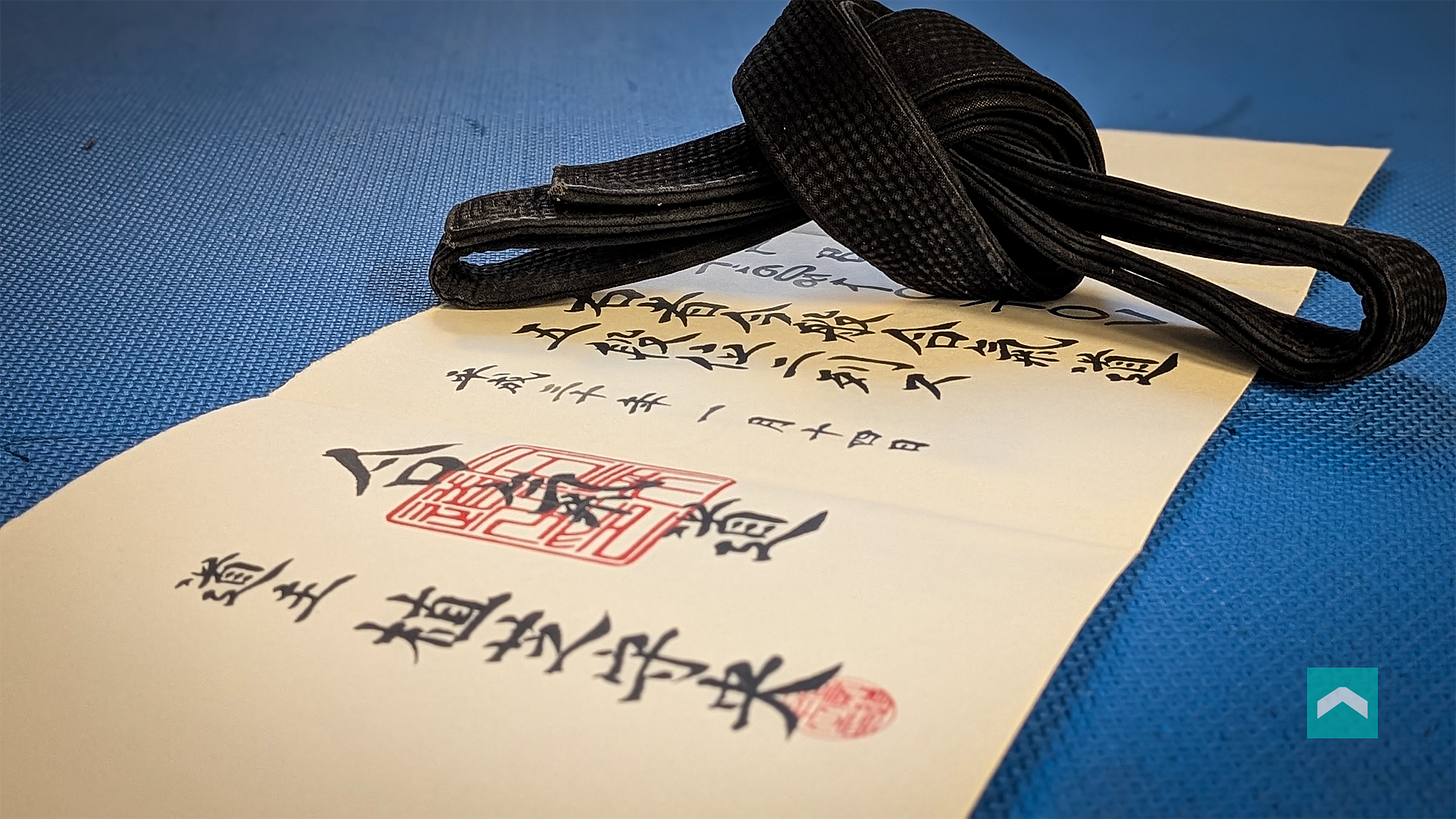 右者今般合氣道
五段位ニ列ス
平成三十年一月十四日
合氣道
道主植芝守央